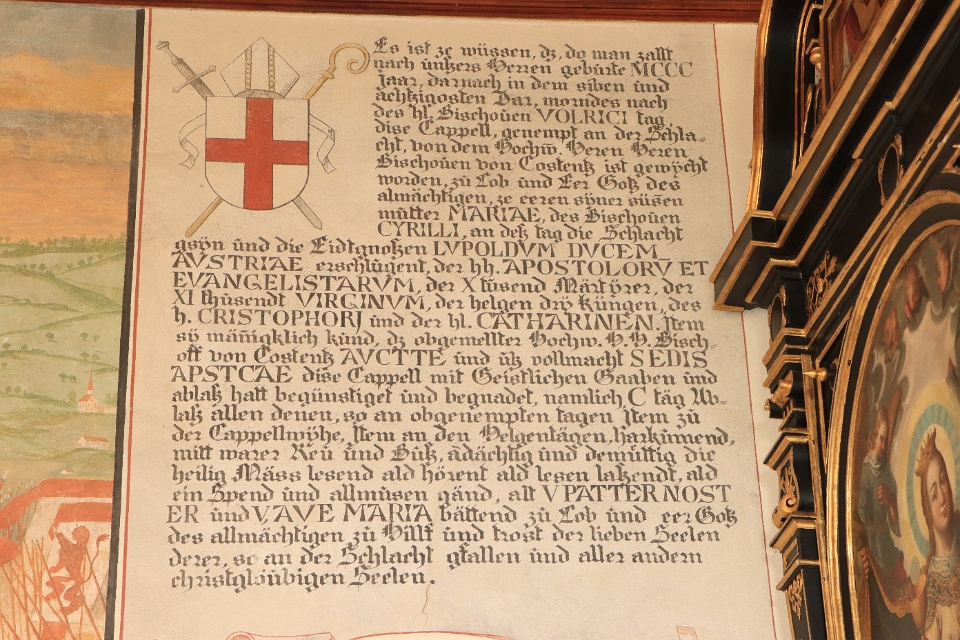 Es ist ze wüssen, dz, do man zallt
nach ünsers Herren gebürte MCCC
Jaar, darnach in dem siben ünd
achtzigosten Dar, morndes nach
des hl. Bischoüen VOLRICI tag,
dise Cappell, genempt an der Schla-
cht, von dem Hochw. Heren Heren
Bischoüen von Costentz ist gewycht
worden, zü Lob und Eer Gotz des
almächtigen, ze eeren syner süsen
mütter MARIAE, des Bischoüen
CYRILLI, an detz tag die Schlacht
gsÿn ünd die Eidtgnoßen LUPOLDUM DUCEM
AUSTRIAE erschlügent, der hh. APOSTOLORU ET
EVANGELISTARUM, der X tüsend Märtÿrer, der
XI thüsendt VIRGINUM, der helgen drÿ Küngen, des
h. CRISTOPHORJ ünd der hl. CATHARINEN. Jtem
sÿ mänigklich künd, dz obgemellter Hochw. H.H. Bisch-
off von Costentz AVCTTE ünd üß vollmacht SEDIS
APSTCAE dise Cappell mit Geistlichen Gaaben ünd
ablaß hatt begünstiget ünd begnadet, namlich C tag Ab-
laß allen denen, so an obgenempten tagen Jtem zü
der Cappellwÿhe, Jtem an den Helgentägen, harkümend,
mitt warer Reü ünd Büß, adächtig ünd demüttig die
heilig Mäss lesend ald hörent ald lesen latzendt, ald
ein Spend ünd allmüsen gänd, alt V PATTER NOST
ER ünd V, AVE MARIA bättend zü Lob ünd eer Gotz
des allmächtigen zü Hilff ünd trost der lieben Seelen
derer, so an der Schlacht gfallen ünd aller andern
christgloübigen Seelen.